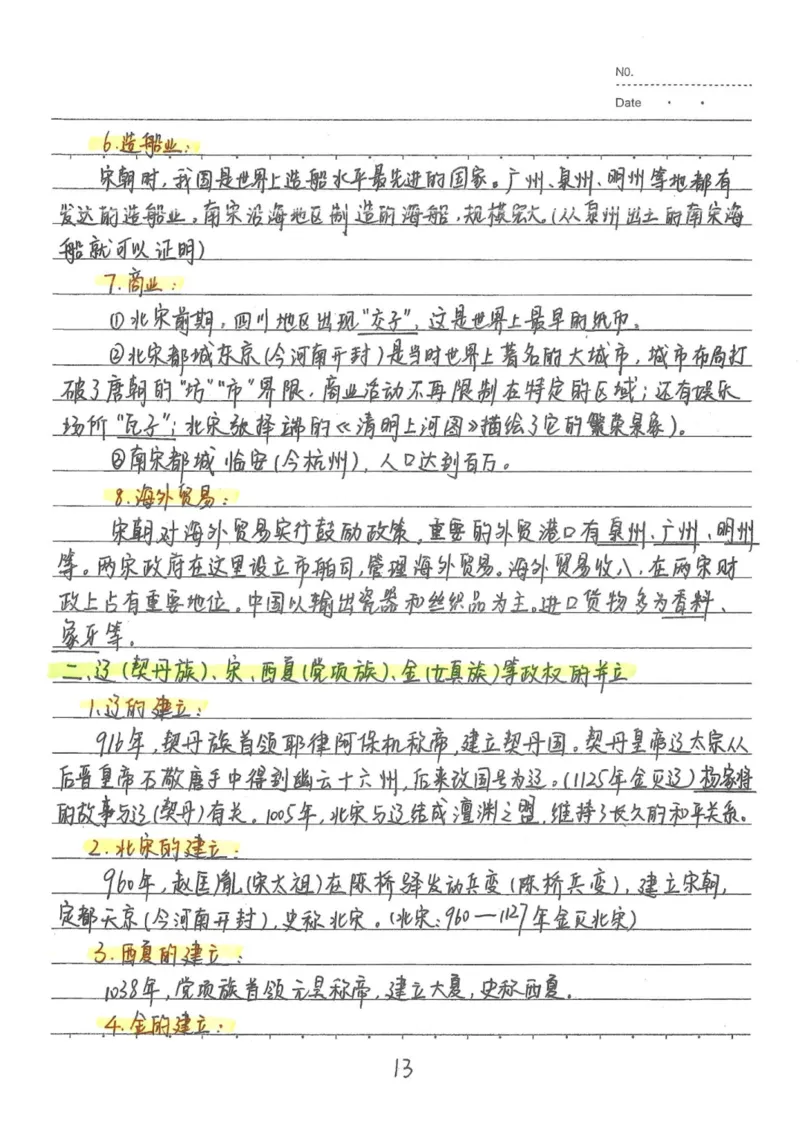 NO.
Date
6.造船业:
宋朝时,我国是世界上造船水平最先进的国家。广州、泉州、明州等地都有
发达的造船业。南宋沿海地区制造的海船,规模宏大。(从泉州出土的南宋海
船就可以证明)
7.商业:
①北宋前期,四川地区出现"交子",这是世界上最早的纸币。
②北宋都城东京(今河南开封)是当时世界上著名的大城市,城市布局打
破了唐朝的"坊""市"界限,商业活动不再限制在特定的区域;还有娱乐
场所"瓦子";北宋张择端的《清明上河图》描绘了它的繁荣景象)。
③南宋都城临安(今杭州),人口达到百万。
8.海外贸易:
宋朝对海外贸易实行鼓励政策,重要的外贸港口有泉州、广州、明州
等。两宋政府在这里设立市舶司,管理海外贸易。海外贸易收入,在两宋财
政上占有重要地位。中国以输出瓷器和丝织品为主。进口货物多为香料、
象牙等。
二、辽(契丹族)、宋、西夏(党项族)、金(女真族)等政权的并立
1.辽的建立:
916年,契丹族首领耶律阿保机称帝,建立契丹国。契丹皇帝辽太宗从
后晋皇帝石敬唐手中得到幽云十六州,后来改国号为辽。(1125年金灭辽)杨家将
的故事与辽(契丹)有关。1005年,北宋与辽结成澶渊之盟,维持了长久的和平关系。
2.北宋的建立:
960年,赵匡胤(宋太祖)在陈桥驿发动兵变(陈桥兵变),建立宋朝,
定都东京(今河南开封),史称北宋。(北宋:960—1127年金灭北宋)
3.西夏的建立:
1038年,党项族首领元昊称帝,建立大夏,史称西夏。
4.金的建立:
13